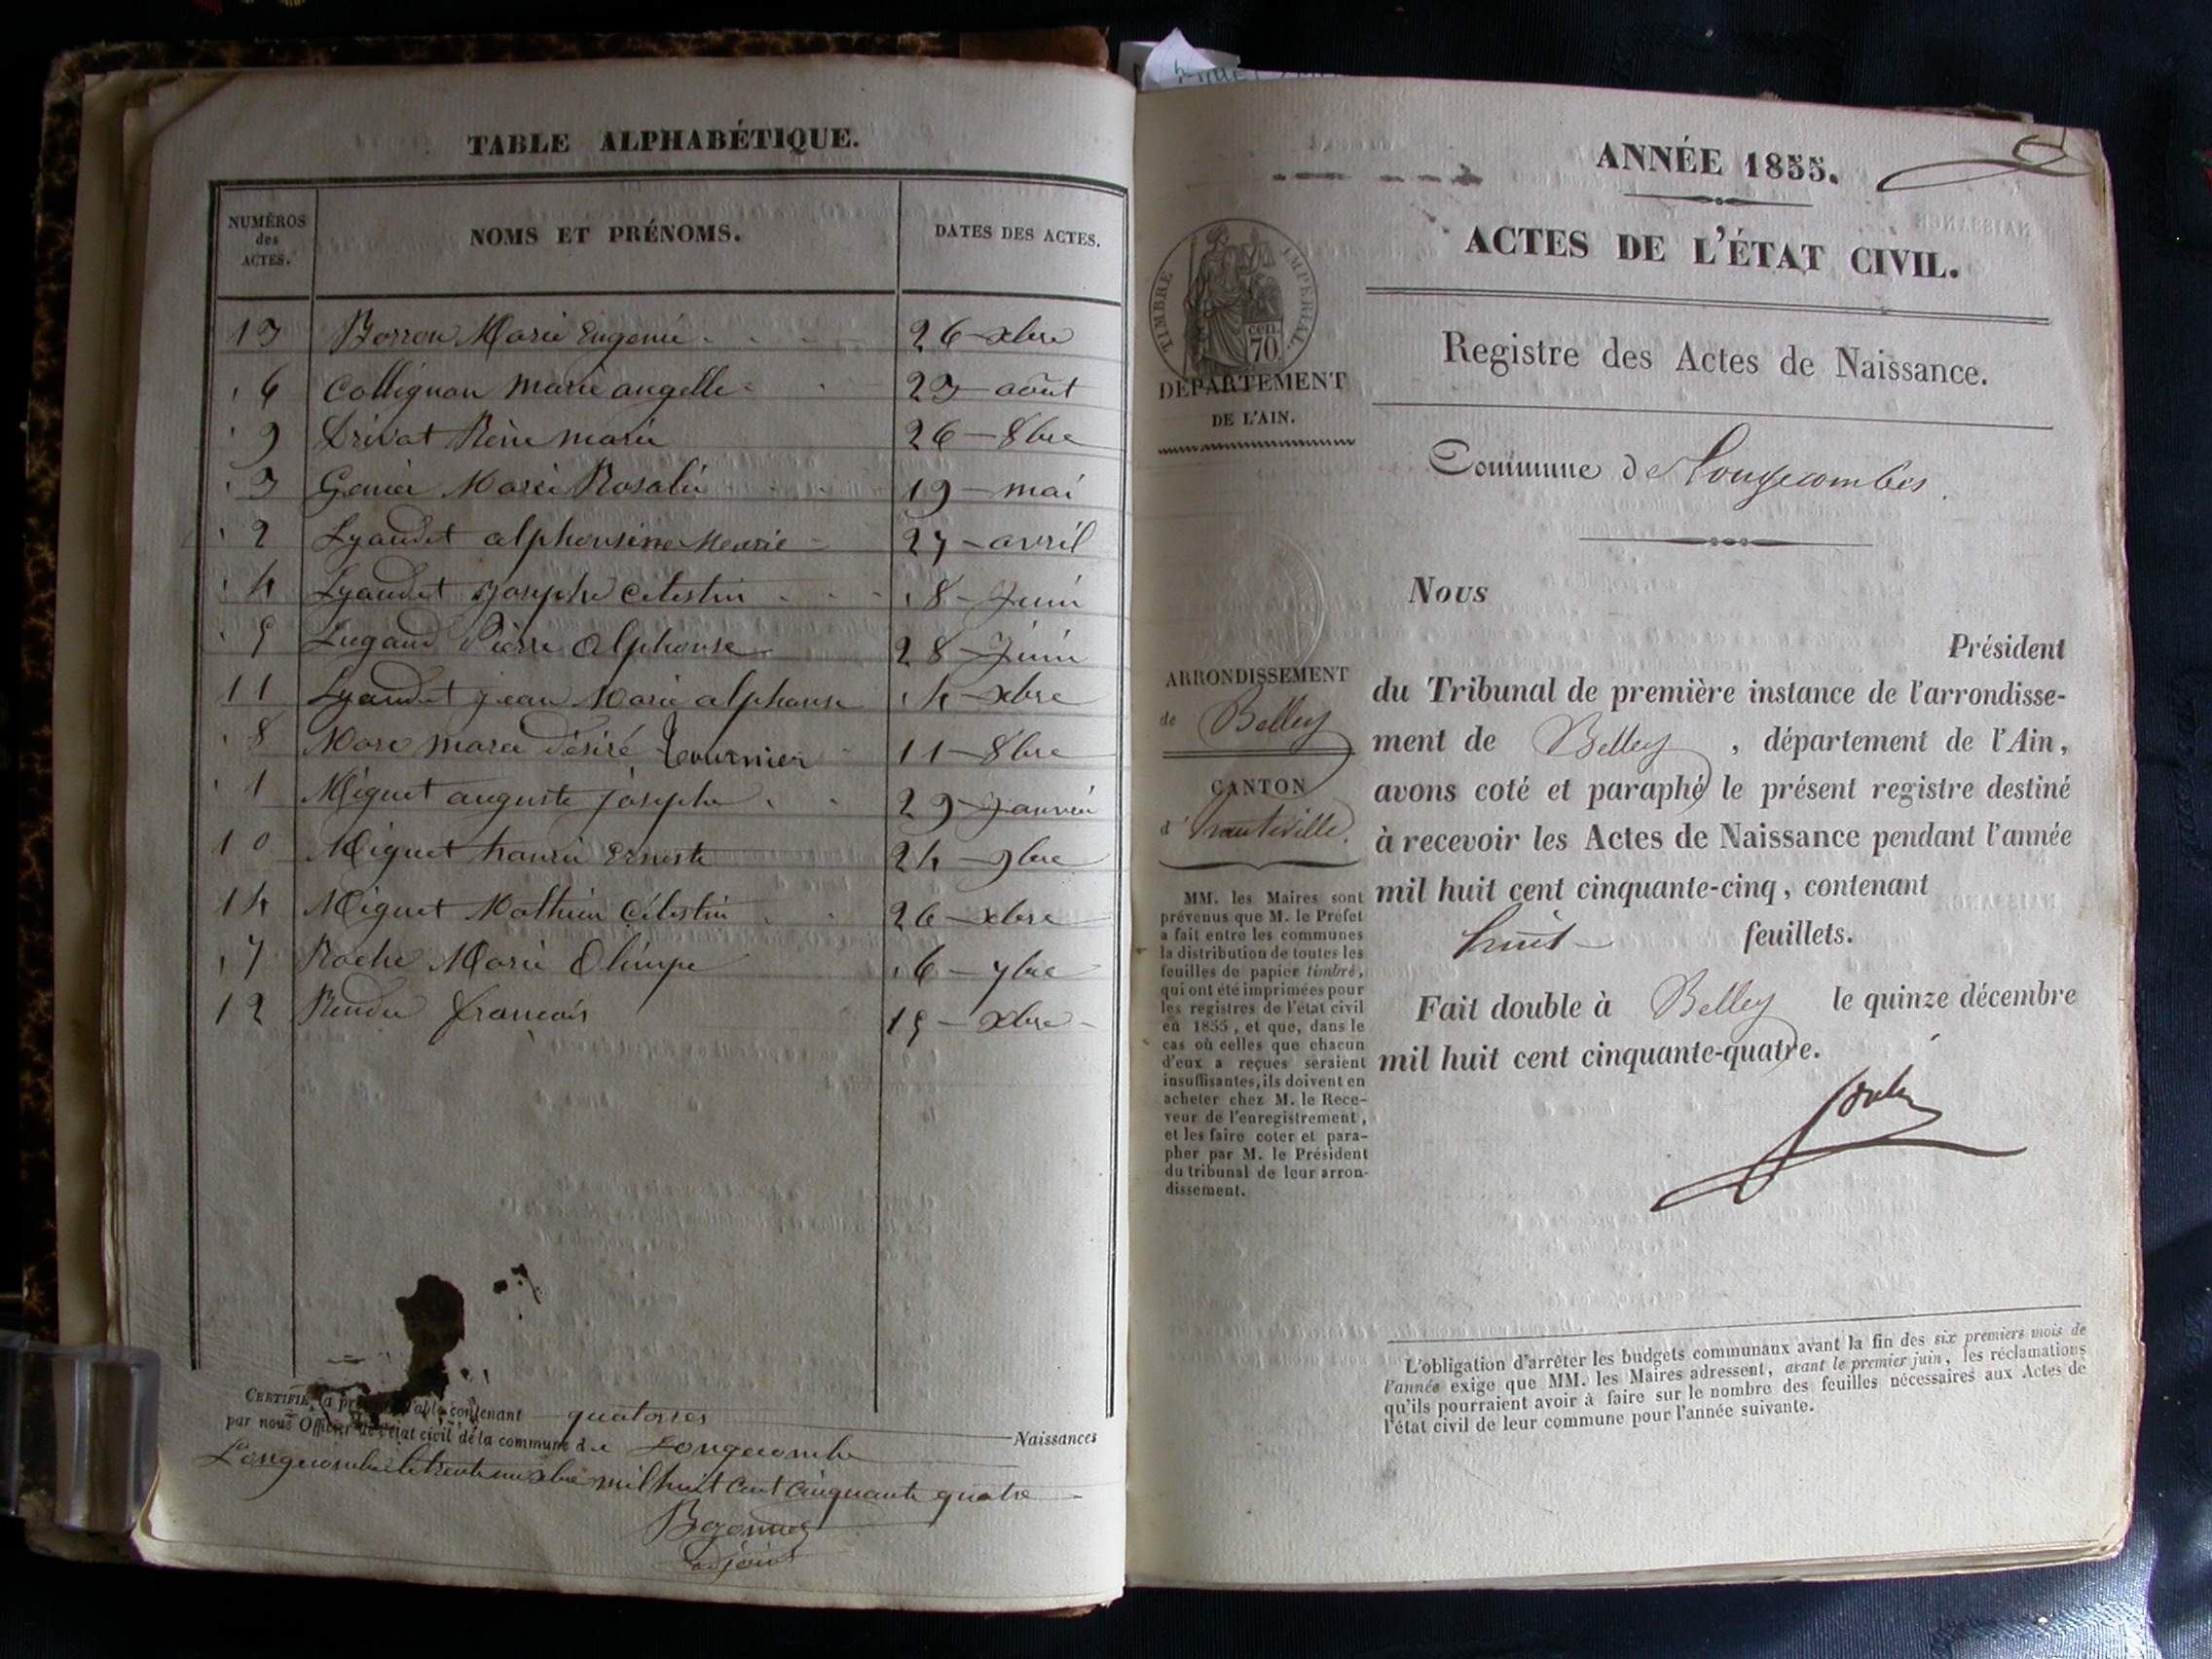 TABLE ALPHABÉTIQUE.
NUMÉROS des ACTES. NOMS ET PRÉNOMS. DATES DES ACTES.
13 Borron Marie Eugenie 26 xbre
6 Collignon Marie angelle 23 août
9 Drivat Reine marie 26 8bre
3 Marie Rosalie 19 mai
2 Lyaudet alphonsine Marie 27 avril
4 Lyaudet Josephe Celestin 8 Juin
5 Lugand Pierre Alphonse 28 Juin
11 Lyaudet jean Marie alphonse 4 xbre
8 Marie désiré Tournier 11 8bre
1 Miguet auguste joseph 29 Janvier
10 Miguet hanrie Erneste 24 9bre
14 Miguet Mathieu Célestin 26 xbre
7 Roche Marie Olimpe 6 7bre
12 Rendu francois 15 xbre
CERTIFIÉ la présente Table contenant quatorzes Naissances
par nous Officier de l'état civil de la commune de Longecombe
Longecombe le trente un xbre mil huit Cent Cinquante quatre
adjoint
ANNÉE 1855.
ACTES DE L'ÉTAT CIVIL.
TIMBRE IMPERIAL
cen.
70
DÉPARTEMENT
DE L'AIN.
Registre des Actes de Naissance.
Commune de Longecombes.
Nous
Président
ARRONDISSEMENT
de Belley
CANTON
d'hauteville.
du Tribunal de première instance de l'arrondisse-
ment de Belley, département de l'Ain,
avons coté et paraphé le présent registre destiné
à recevoir les Actes de Naissance pendant l'année
mil huit cent cinquante-cinq, contenant
huit feuillets.
Fait double à Belley le quinze décembre
mil huit cent cinquante-quatre.
MM. les Maires sont
prévenus que M. le Préfet
a fait entre les communes
la distribution de toutes les
feuilles de papier timbré,
qui ont été imprimées pour
les registres de l'état civil
en 1855, et que, dans le
cas où celles que chacun
d'eux a reçues seraient
insuffisantes, ils doivent en
acheter chez M. le Rece-
veur de l'enregistrement,
et les faire coter et para-
pher par M. le Président
du tribunal de leur arron-
dissement.
L'obligation d'arrêter les budgets communaux avant la fin des six premiers mois de
l'année exige que MM. les Maires adressent, avant le premier juin, les réclamations
qu'ils pourraient avoir à faire sur le nombre des feuilles nécessaires aux Actes de
l'état civil de leur commune pour l'année suivante.